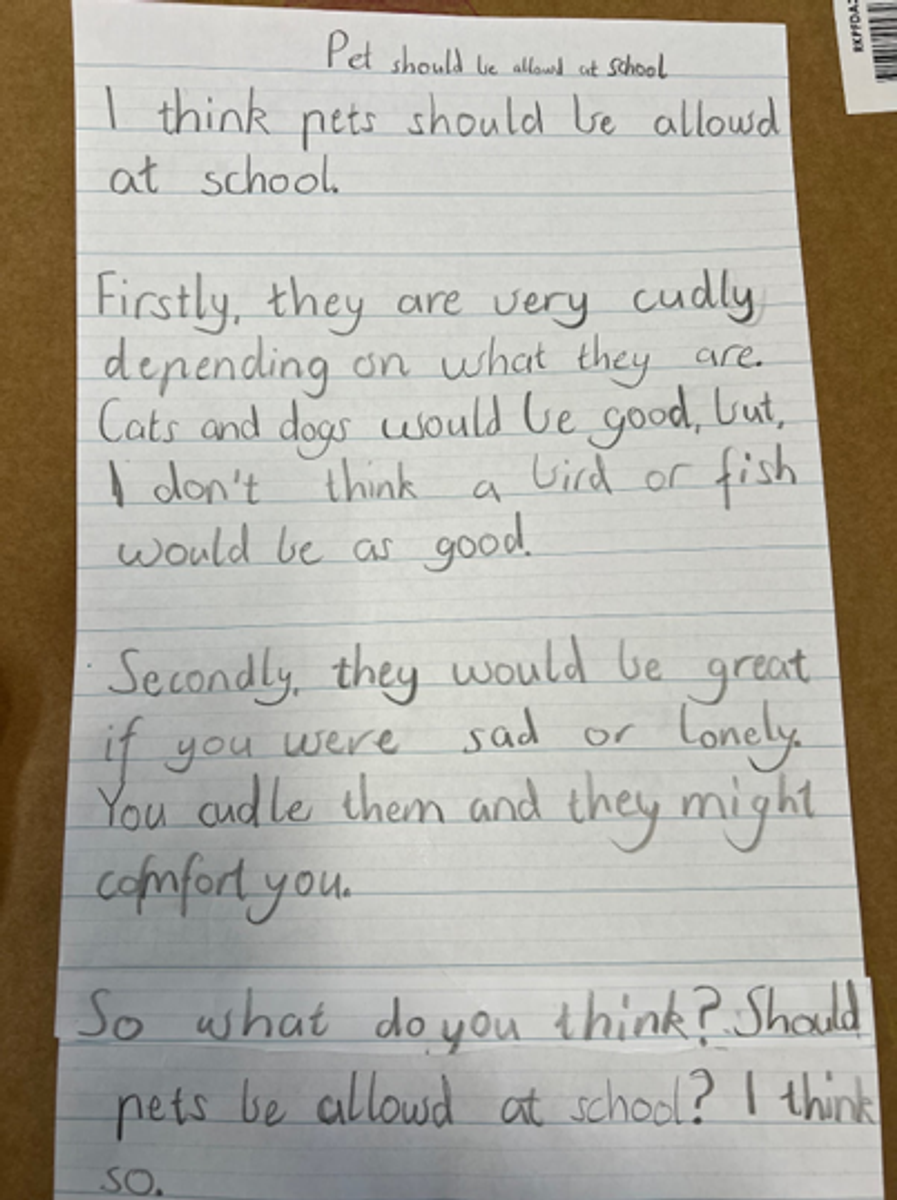 Pet should be allowd at school
I think pets should be allowd
at school.
Firstly, they are very cudly
depending on what they are.
Cats and dogs would be good, but,
I don't think a bird or fish
would be as good.
Secondly, they would be great
if you were sad or lonely.
You cudle them and they might
comfort you.
So what do you think? Should
pets be allowd at school? I think
so.